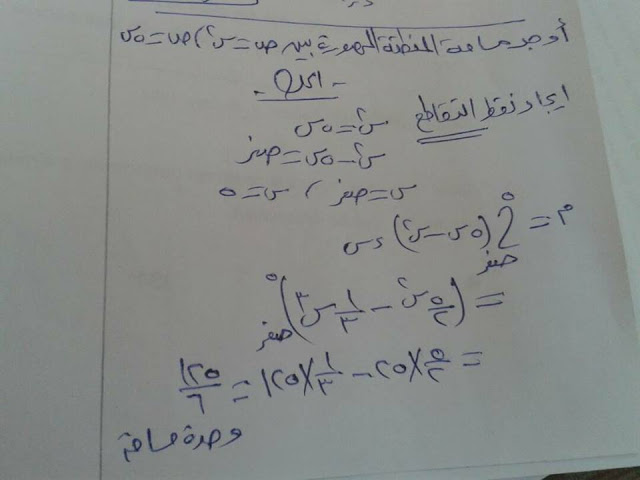 أوجد مساحة المنطقة المحصورة بين ص=س٢ ، ص=٥س
- الحل -
ايجاد نقط التقاطع
س٢=٥س
س٢-٥س=صفر
س=صفر ، س=٥
م = ∫ صفر ٥ (٥س-س٢) ءس
= (٥/٢ س٢ - ١/٣ س٣) صفر ٥
= ٥/٢ × ٢٥ - ١/٣ × ١٢٥ = ١٢٥/٦
وحدة مساحة